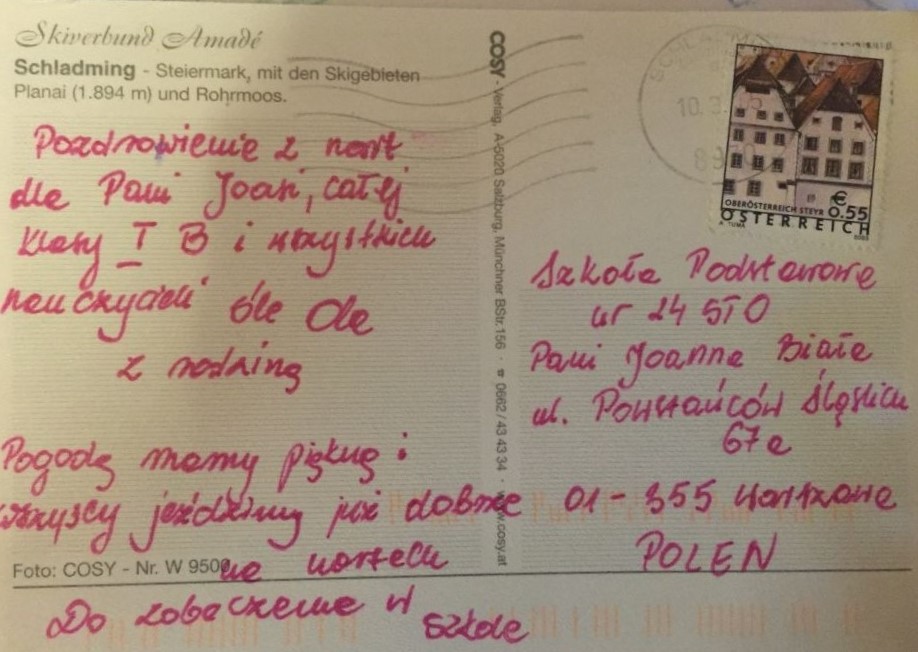 Skiverbund Amadé
Schladming - Steiermark, mit den Skigebieten
Planai (1.894 m) und Rohrmoos.
Pozdrowienie z nart
dla Pani Joasi, całej
klasy I B i wszystkich
nauczycieli śle Ola
z rodziną
Pogodę mamy piękną i
wszyscy jeździmy już dobrze
na nartach
Do zobaczenia w szkole
Foto: COSY - Nr. W 9500
COSY - Verlag, A-5020 Salzburg, Münchner BStr. 156 · ☎ 0662 / 43 43 34 · www.cosy.at
10.3.05
OBERÖSTERREICH STEYR
€ 0.55
ÖSTERREICH
A. TUMA
Szkoła Podstawowa
nr 24 STO
Pani Joanna Biała
ul. Powstańców Śląskich
67a
01-355 Warszawa
POLEN